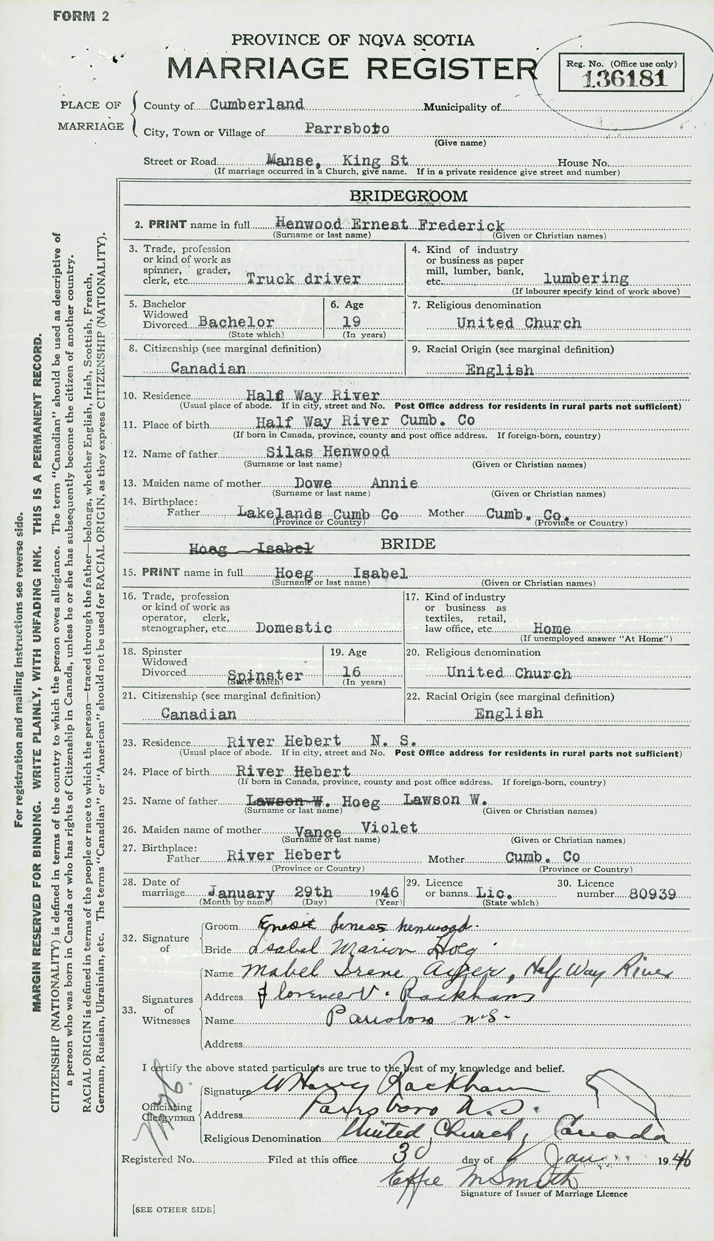 FORM 2
PROVINCE OF NOVA SCOTIA
MARRIAGE REGISTER
Reg. No. (Office use only)
136181
PLACE OF MARRIAGE
County of Cumberland Municipality of
City, Town or Village of Parrsboro
(Give name)
Street or Road Manse, King St House No.
(If marriage occurred in a Church, give name. If in a private residence give street and number)
BRIDEGROOM
2. PRINT name in full Henwood Ernest Frederick
(Surname or last name) (Given or Christian names)
3. Trade, profession or kind of work as spinner, grader, clerk, etc. Truck driver
4. Kind of industry or business as paper mill, lumber, bank, etc. lumbering
(If labourer specify kind of work above)
5. Bachelor Widowed Divorced Bachelor
(State which)
6. Age 19
(In years)
7. Religious denomination
United Church
8. Citizenship (see marginal definition)
Canadian
9. Racial Origin (see marginal definition)
English
10. Residence Half Way River
(Usual place of abode. If in city, street and No. Post Office address for residents in rural parts not sufficient)
11. Place of birth Half Way River Cumb. Co
(If born in Canada, province, county and post office address. If foreign-born, country)
12. Name of father Silas Henwood
(Surname or last name) (Given or Christian names)
13. Maiden name of mother Dowe Annie
(Surname or last name) (Given or Christian names)
14. Birthplace:
Father Lakelands Cumb Co Mother Cumb. Co.
(Province or Country) (Province or Country)
Hoeg Isabel BRIDE
15. PRINT name in full Hoeg Isabel
(Surname or last name) (Given or Christian names)
16. Trade, profession or kind of work as operator, clerk, stenographer, etc. Domestic
17. Kind of industry or business as textiles, retail, law office, etc. Home
(If unemployed answer "At Home")
18. Spinster Widowed Divorced Spinster
(State which)
19. Age 16
(In years)
20. Religious denomination
United Church
21. Citizenship (see marginal definition)
Canadian
22. Racial Origin (see marginal definition)
English
23. Residence River Hebert N. S.
(Usual place of abode. If in city, street and No. Post Office address for residents in rural parts not sufficient)
24. Place of birth River Hebert
(If born in Canada, province, county and post office address. If foreign-born, country)
25. Name of father Lawson W. Hoeg Lawson W.
(Surname or last name) (Given or Christian names)
26. Maiden name of mother Vance Violet
(Surname or last name) (Given or Christian names)
27. Birthplace:
Father River Hebert Mother Cumb. Co
(Province or Country) (Province or Country)
28. Date of marriage January 29th 1946
(Month by name) (Day) (Year)
29. Licence or banns Lic.
(State which)
30. Licence number 80939
32. Signature of
Groom Ernest Henwood.
Bride Isabel Marion Hoeg
33. Signatures of Witnesses
Name Mabel Irene Ayer, Half Way River
Address Florence V. Rackham
Name Parrsboro N.S.
Address
I certify the above stated particulars are true to the best of my knowledge and belief.
Officiating Clergyman
Signature W Harry Rackham
Address Parrsboro N.S.
Religious Denomination United Church, Canada
Registered No. Filed at this office 30 day of Jan 1946
Effie M Smith
Signature of Issuer of Marriage Licence
[SEE OTHER SIDE]
For registration and mailing instructions see reverse side.
MARGIN RESERVED FOR BINDING. WRITE PLAINLY, WITH UNFADING INK. THIS IS A PERMANENT RECORD.
CITIZENSHIP (NATIONALITY) is defined in terms of the country to which the person owes allegiance. The term "Canadian" should be used as descriptive of
a person who was born in Canada or who has rights of Citizenship in Canada, unless he or she has subsequently become the citizen of another country.
RACIAL ORIGIN is defined in terms of the people or race to which the person—traced through the father—belongs, whether English, Irish, Scottish, French,
German, Russian, Ukrainian, etc. The terms "Canadian" or "American" should not be used for RACIAL ORIGIN, as they express CITIZENSHIP (NATIONALITY).